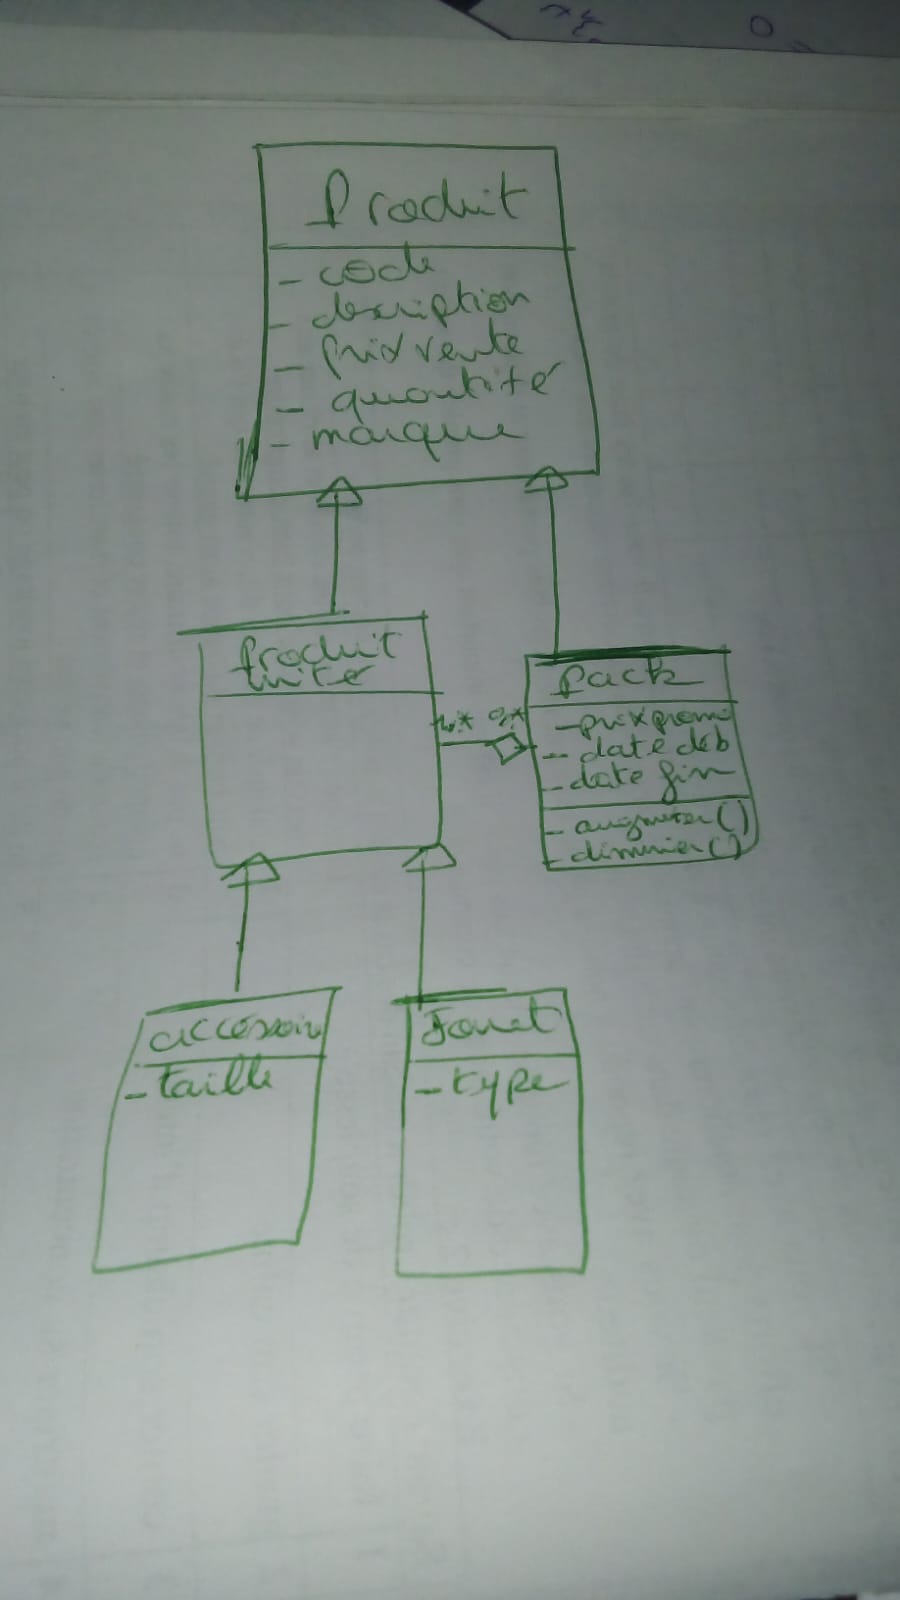 Produit
- code
- description
- prix vente
- quantité
- marque
Produit
unité
Pack
- prix promo
- date deb
- date fin
- augmenter()
- diminuer()
accessoir
- taille
Jouet
- type